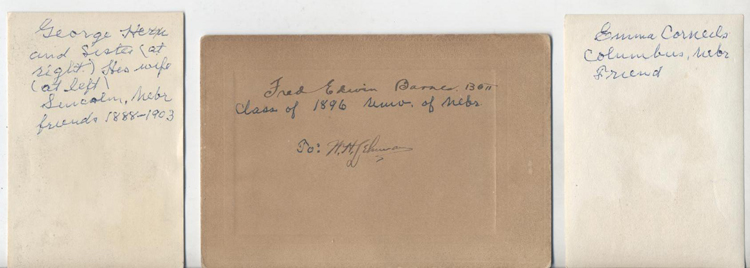 George Herz
and Sister (at
right) His wife
(at left)
Lincoln, Nebr
friends 1888-1903
Fred Edwin
Class of 1896 Univ. of Nebr
To: W.H.
Emma Corneils
Columbus, Nebr
Friend